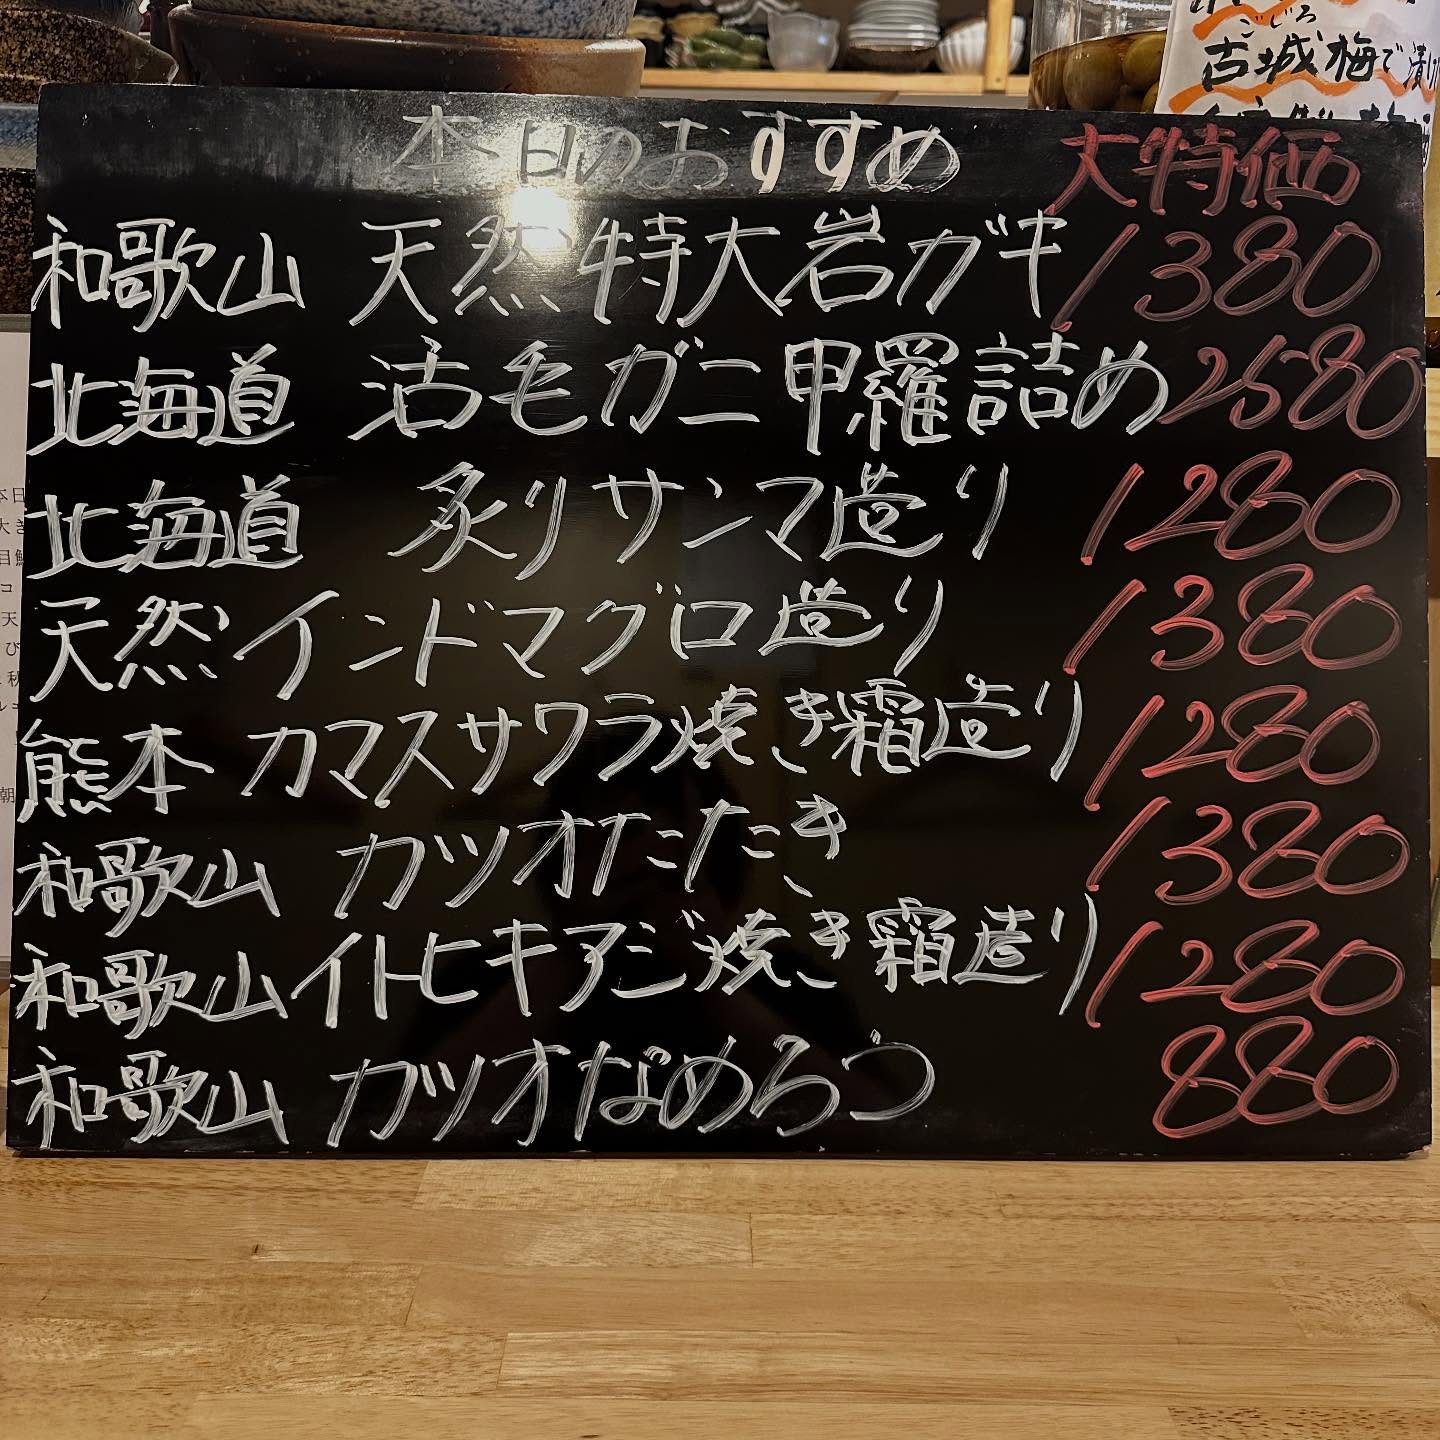 ごじろ
古城梅で漬け
本日のおすすめ 大特価
和歌山 天然特大岩ガキ 1380
北海道 活毛ガニ甲羅詰め 2580
北海道 炙りサンマ造り 1280
天然インドマグロ造り 1380
熊本 カマスサワラ焼き霜造り 1280
和歌山 カツオたたき 1380
和歌山イトヒキアジ焼き霜造り 1280
和歌山 カツオなめろう 880